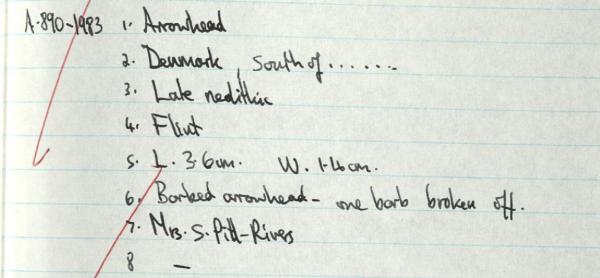 A.890-1983 1. Arrowhead
2. Denmark, South of ......
3. Late neolithic
4. Flint
5. L. 3.6cm. W. 1.4cm.
6. Barbed arrowhead - one barb broken off.
7. Mrs. S. Pitt-Rivers
8 —